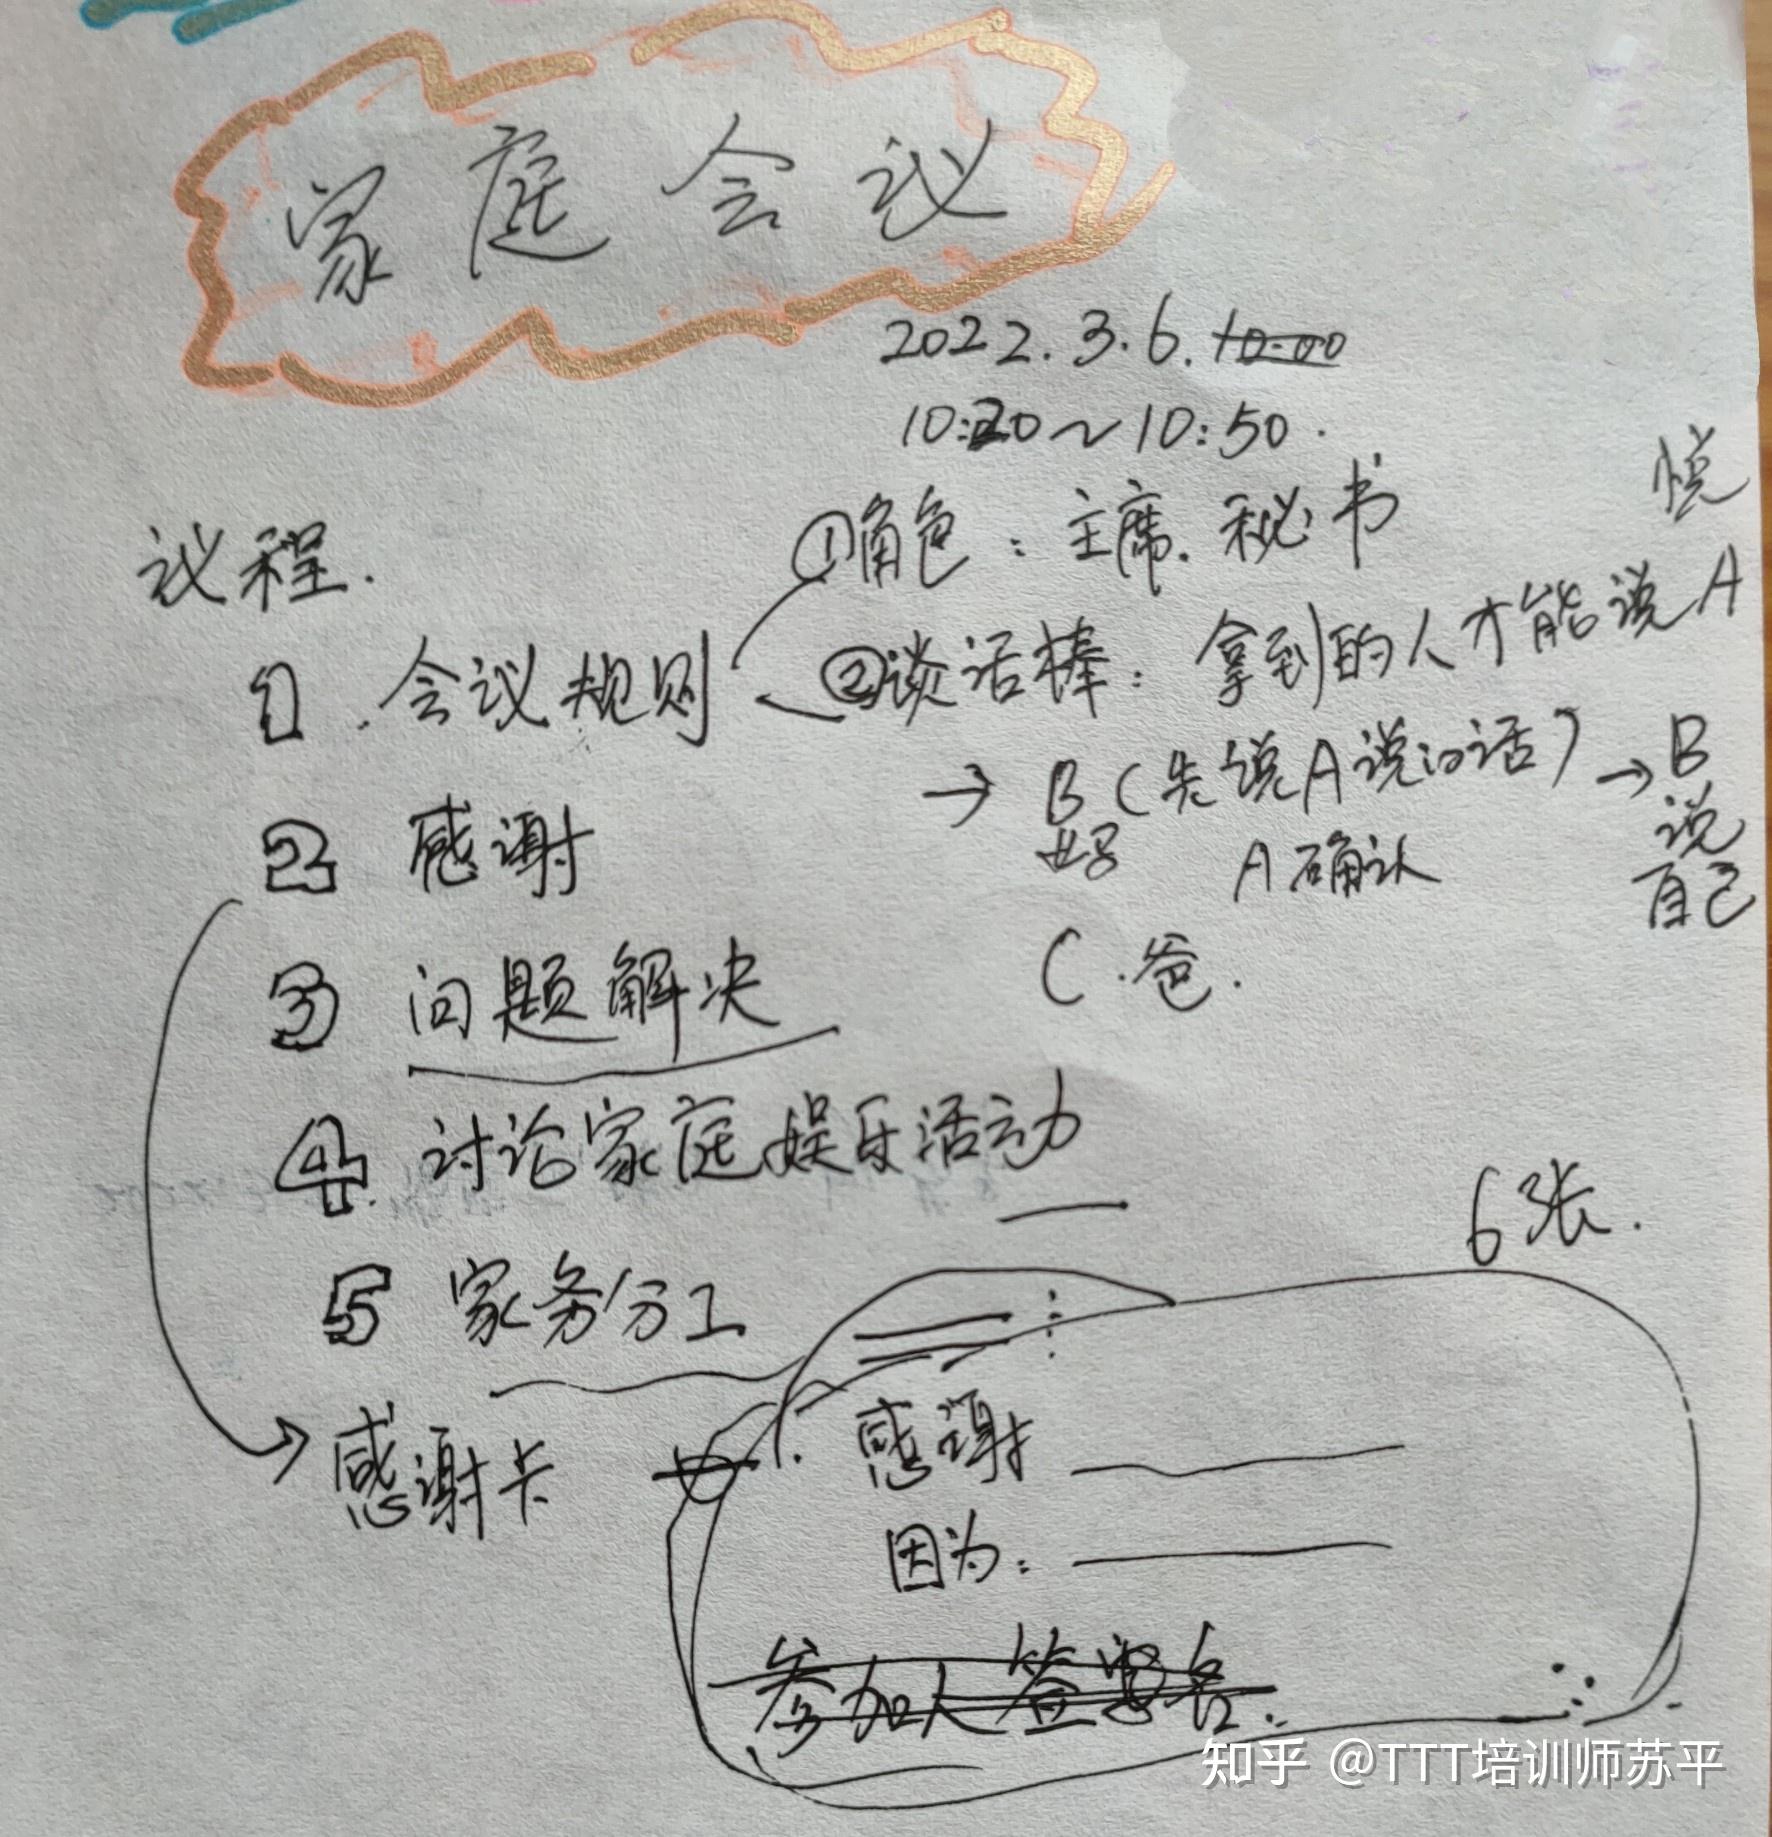 家庭会议
2022.3.6. 10:00
10:20~10:50.
议程.
①角色：主席.秘书
悦
1.会议规则
②谈话棒：拿到的人才能说 A
→ B（先说A说的话）→ B
说
自己
A确认
2 感谢
C.爸.
3 问题解决
4.讨论家庭娱乐活动
5 家务分工
6张.
感谢卡
感谢
因为：
参加人签名：
知乎 @TTT培训师苏平